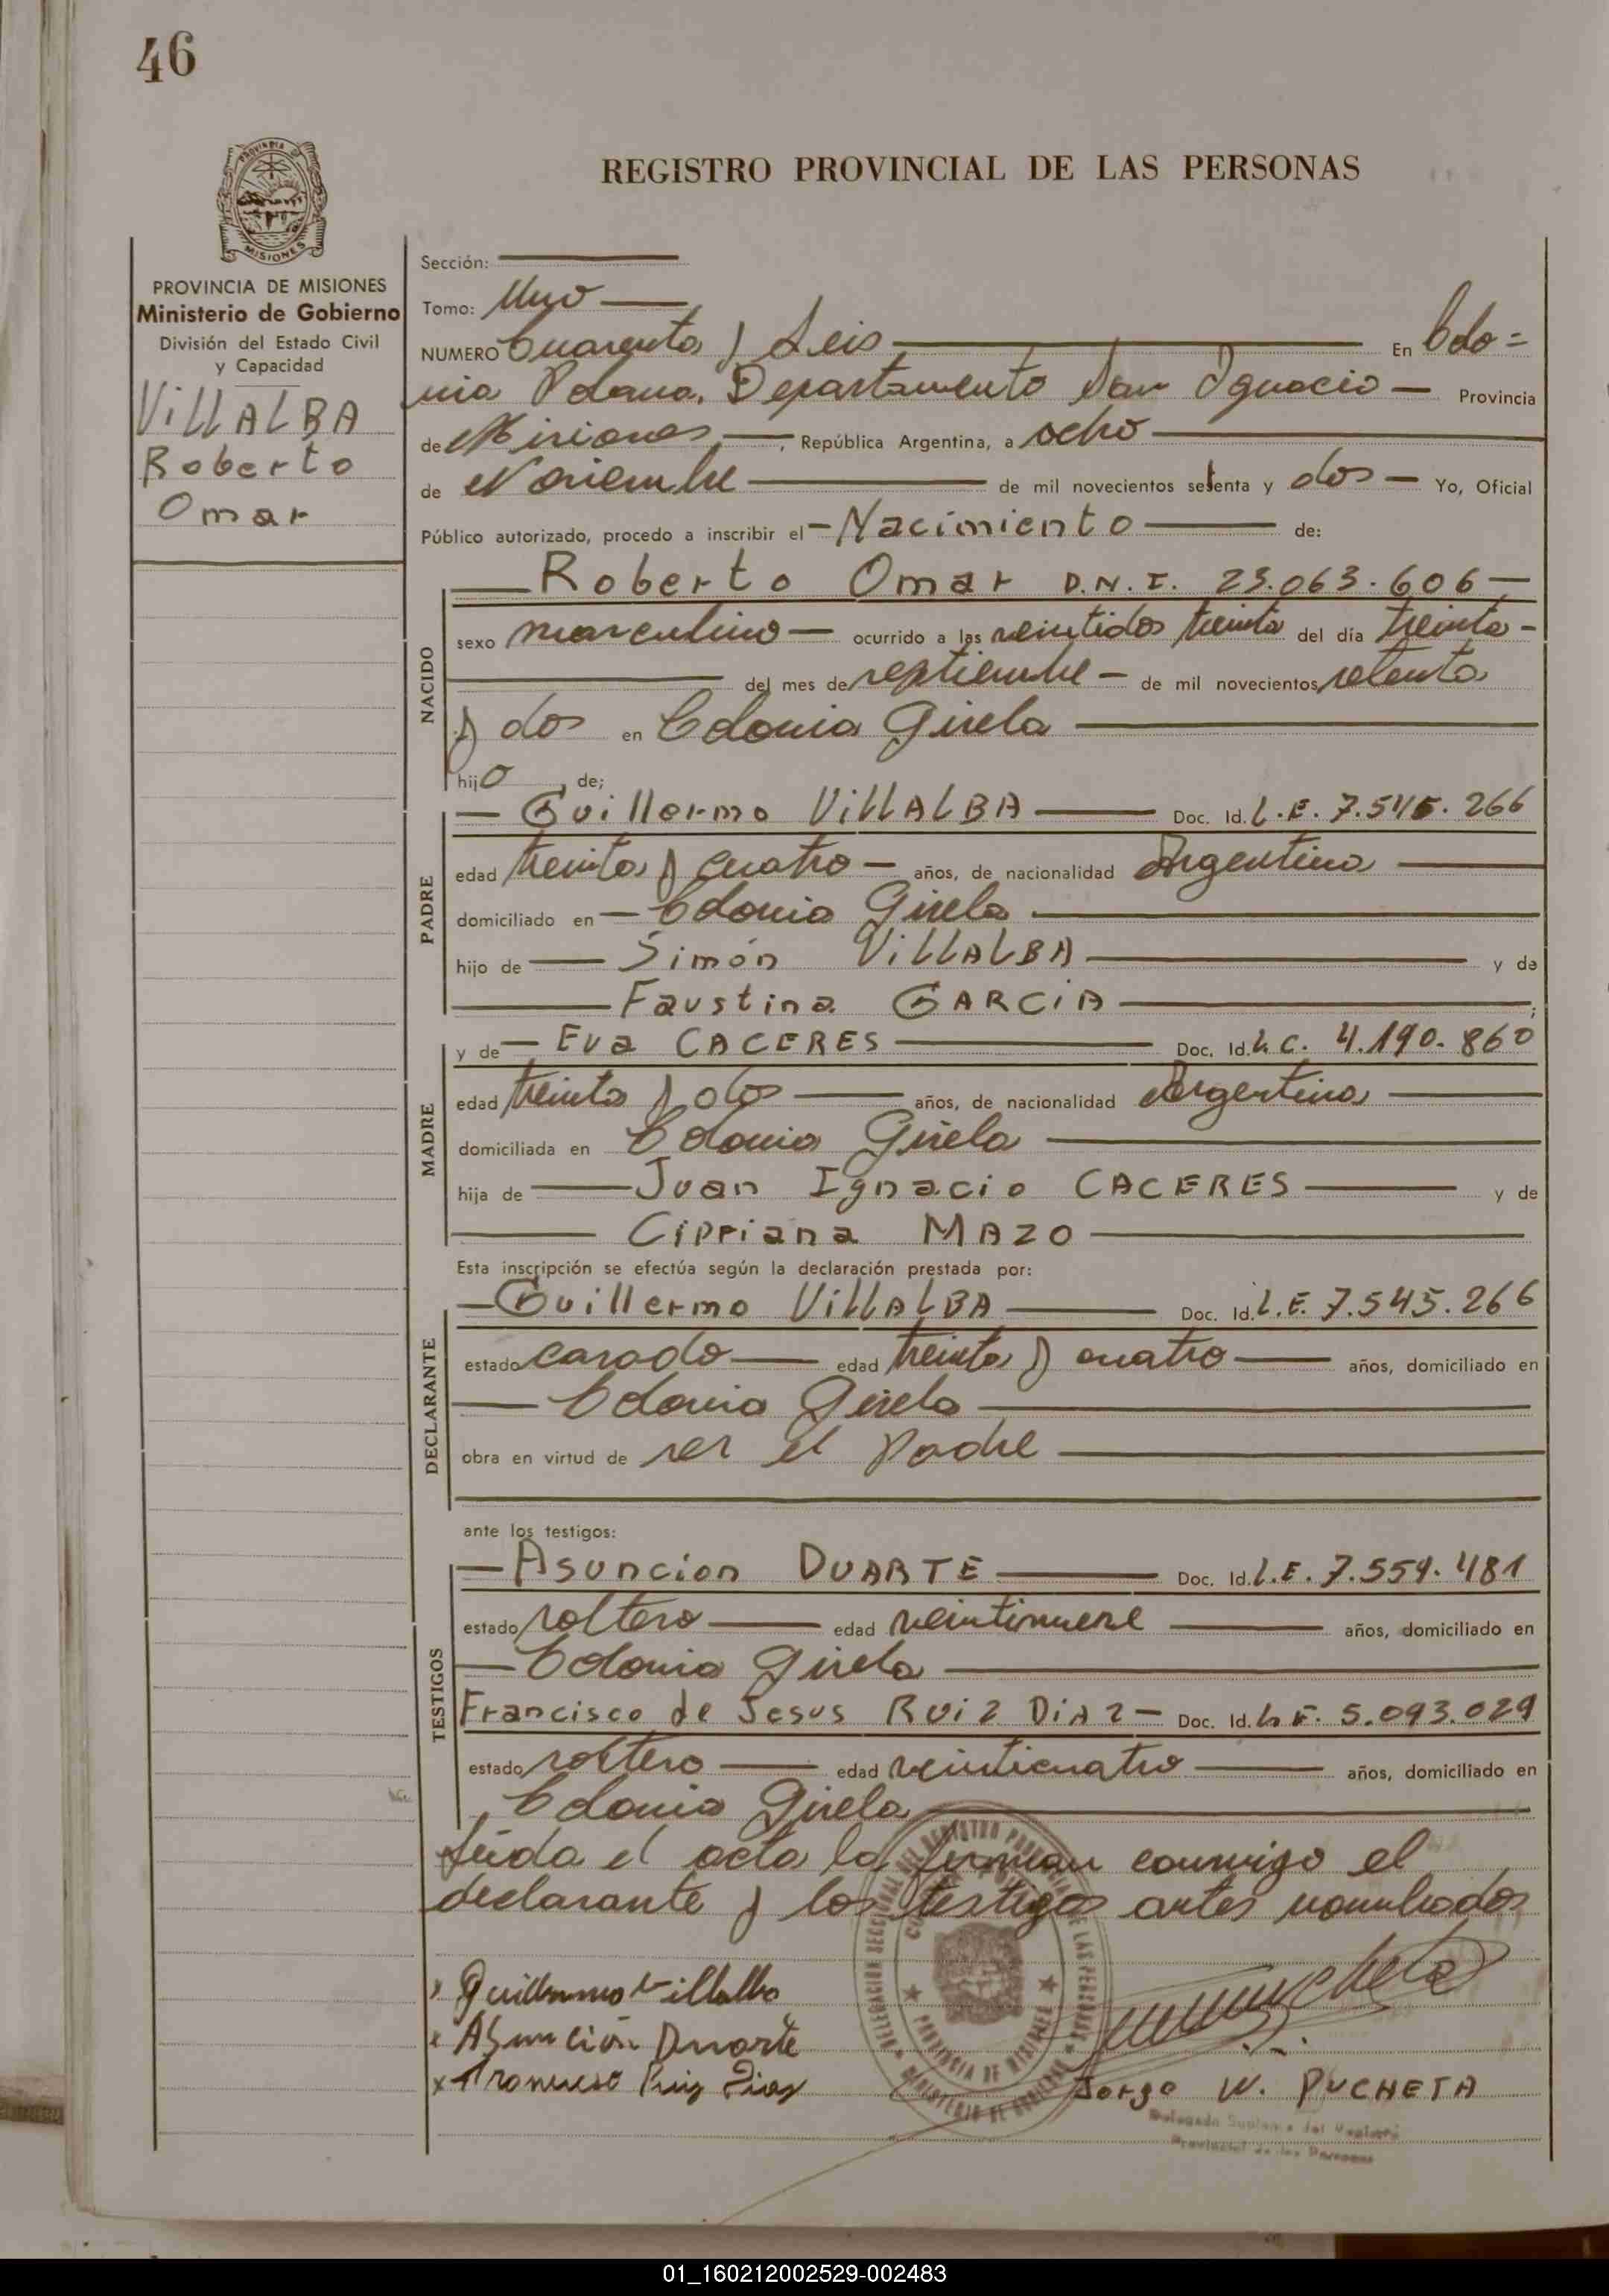 46
PROVINCIA
MISIONES
REGISTRO PROVINCIAL DE LAS PERSONAS
PROVINCIA DE MISIONES
Ministerio de Gobierno
División del Estado Civil
y Capacidad
VILLALBA
Roberto
Omar
Sección:
Tomo: Uno
NUMERO Cuarenta y Seis En Colo=
nia Polana. Departamento San Ignacio Provincia
de Misiones, República Argentina, a ocho
de Noviembre de mil novecientos setenta y dos Yo, Oficial
Público autorizado, procedo a inscribir el Nacimiento de:
NACIDO
Roberto Omar D.N.I. 23.063.606
sexo masculino ocurrido a las veintidos treinta del día treinta
del mes de septiembre de mil novecientos setenta
y dos en Colonia Gisela
hijo de;
PADRE
Guillermo VILLALBA Doc. Id. L.E. 7.545.266
edad treinta y cuatro años, de nacionalidad Argentina
domiciliado en Colonia Gisela
hijo de Simón VILLALBA y de
Faustina GARCIA;
MADRE
y de Eva CACERES Doc. Id. L.C. 4.190.860
edad treinta y dos años, de nacionalidad Argentina
domiciliada en Colonia Gisela
hija de Juan Ignacio CACERES y de
Cipriana MAZO
Esta inscripción se efectúa según la declaración prestada por:
DECLARANTE
Guillermo VILLALBA Doc. Id. L.E. 7.545.266
estado casado edad treinta y cuatro años, domiciliado en
Colonia Gisela
obra en virtud de ser el Padre
ante los testigos:
TESTIGOS
Asuncion DUARTE Doc. Id. L.E. 7.559.481
estado soltero edad veintinueve años, domiciliado en
Colonia Gisela
Francisco de Jesus RUIZ DIAZ Doc. Id. L.E. 5.093.029
estado soltero edad veinticuatro años, domiciliado en
Colonia Gisela
Leida el acta la firman conmigo el
declarante y los testigos antes nombrados
x Guillermo Villalba
x Asunción Duarte
x Francisco Ruiz Diaz
Jorge W. PUCHETA
Delegado Suplente del Registro
Provincial de las Personas
01_160212002529-002483